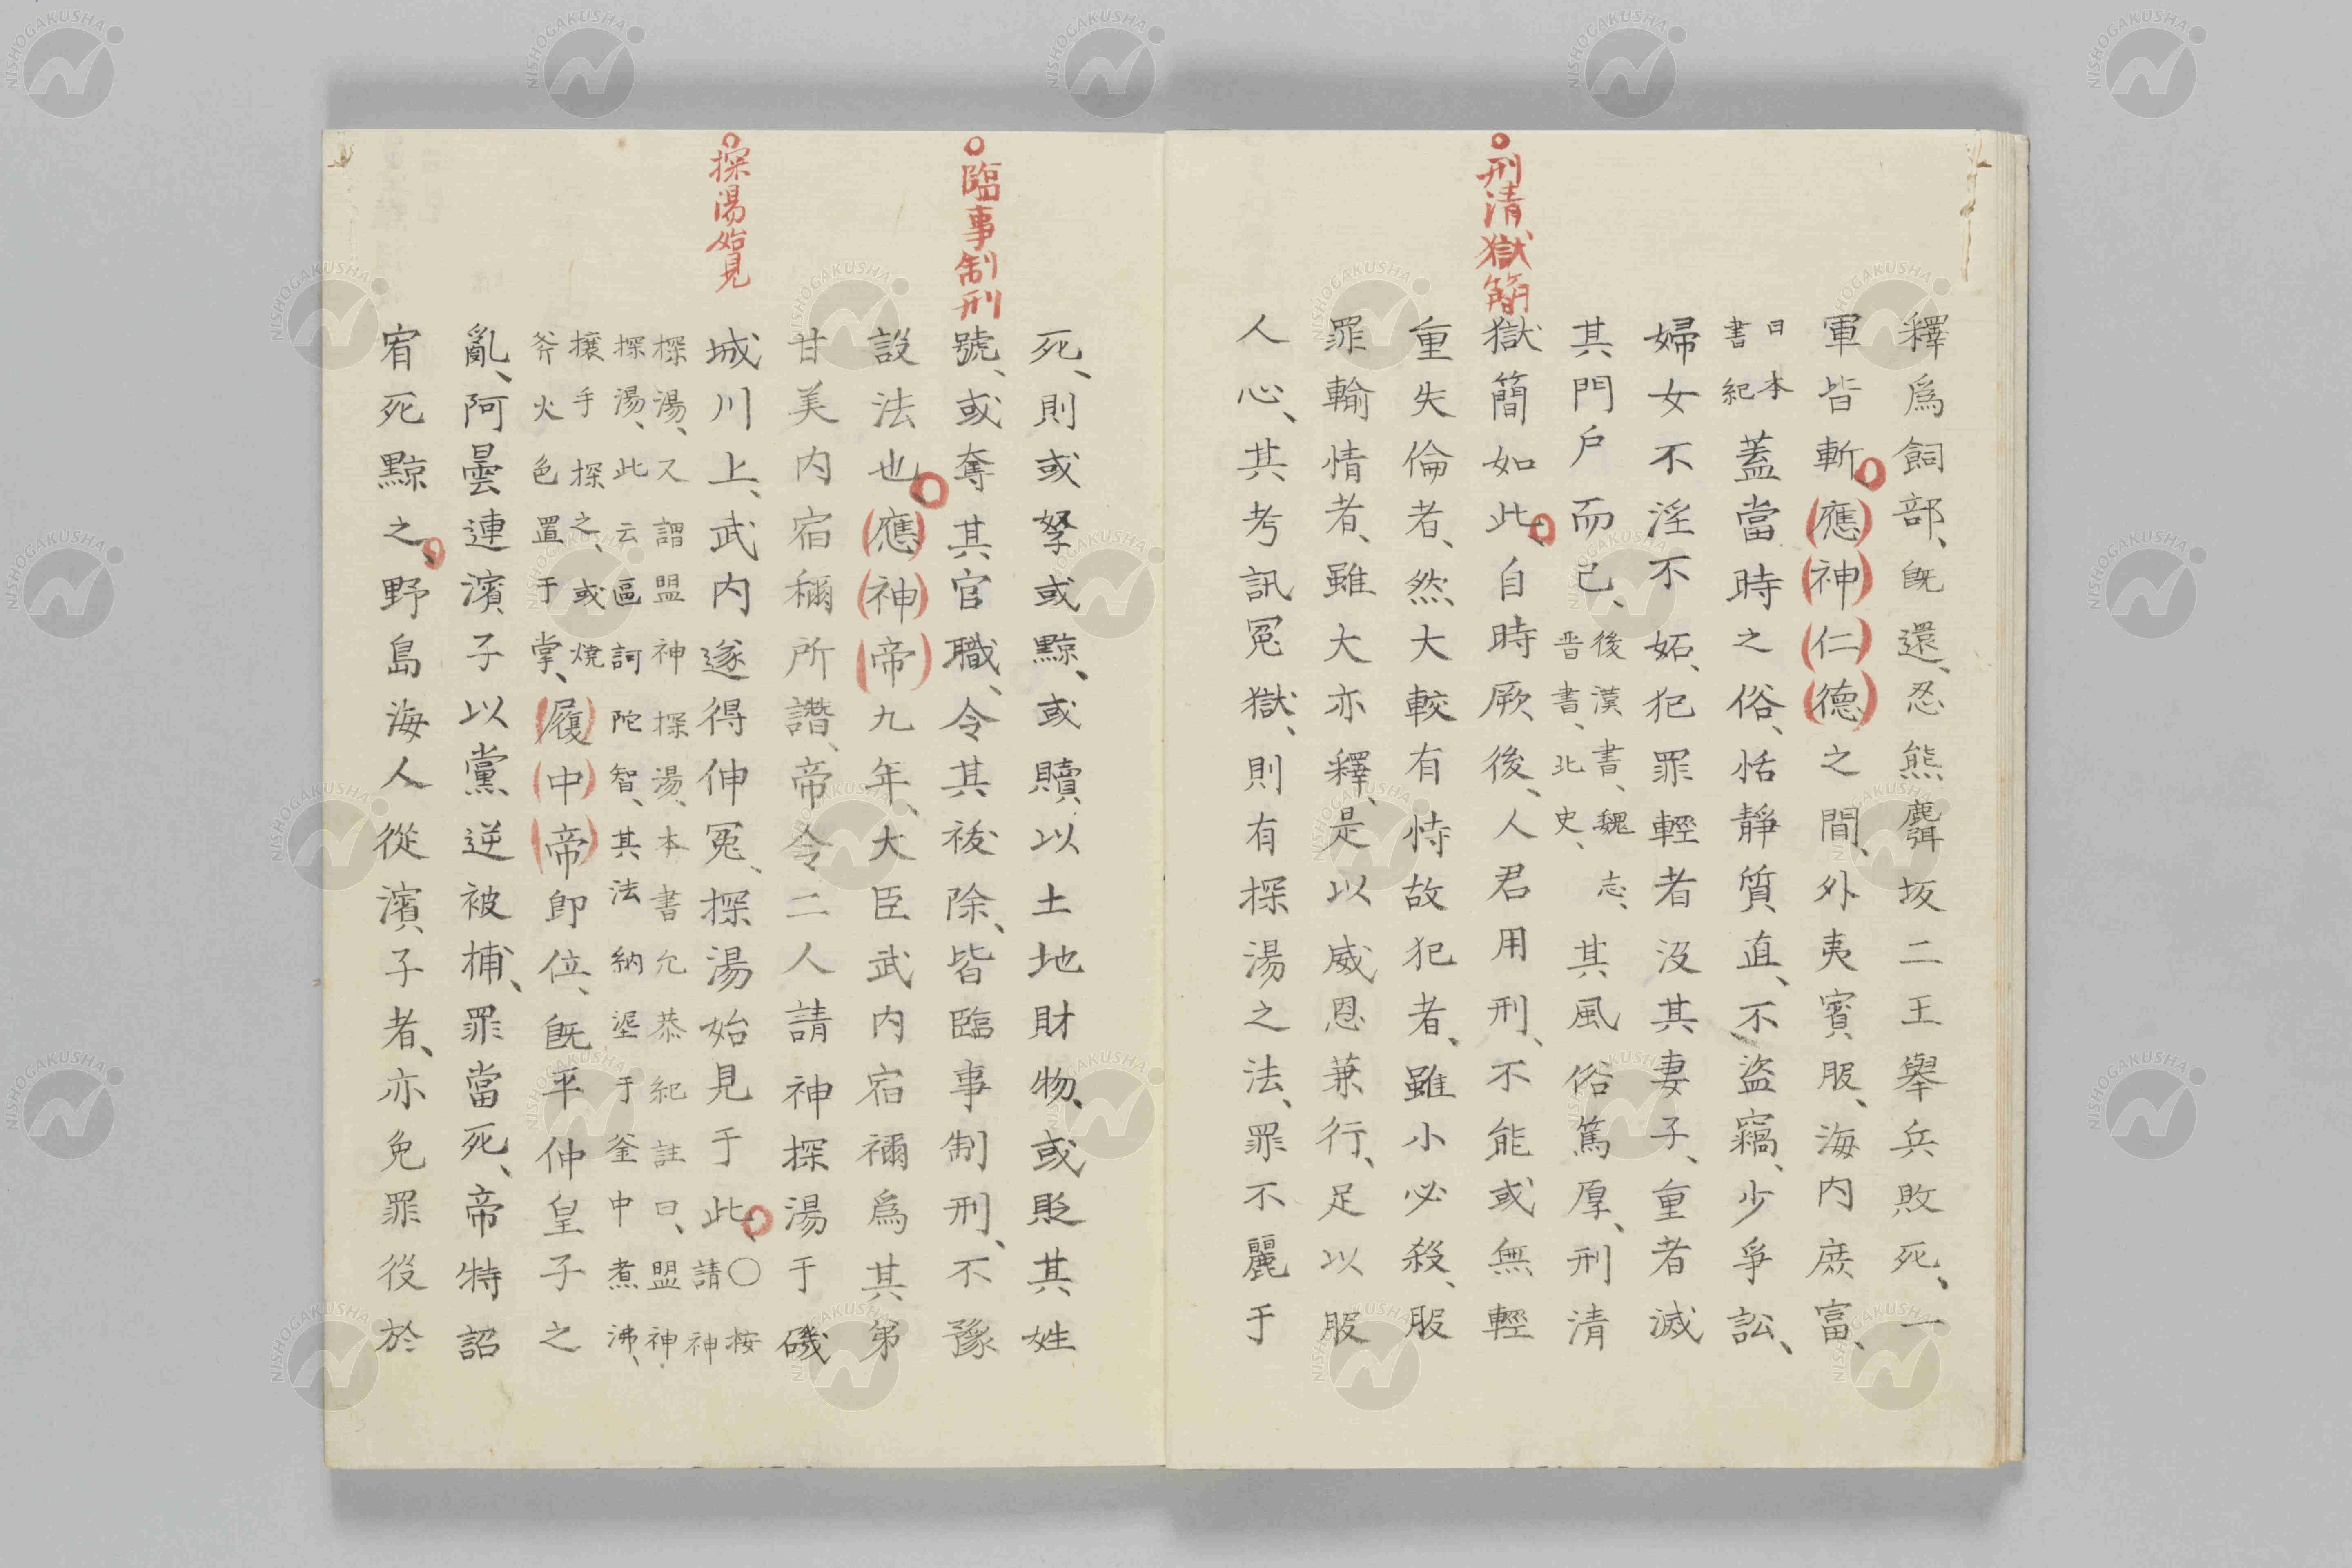 刑清獄簡
釋爲飼部、旣還、忍熊麛坂二王舉兵敗死、一
軍皆斬、應神仁德之間、外夷賓服、海内庶富、
日本書紀
蓋當時之俗、恬靜質直、不盜竊、少爭訟、
婦女不淫不妬、犯罪輕者沒其妻子、重者滅
其門戶而已、
後漢書、魏志、
晋書、北史、
其風俗篤厚、刑清
獄簡如此、自時厥後、人君用刑、不能或無輕
重失倫者、然大較有恃故犯者、雖小必殺、服
罪輸情者、雖大亦釋、是以威恩兼行、足以服
人心、其考訊冤獄、則有探湯之法、罪不麗于
臨事制刑
探湯始見
死、則或孥或黥、或贖以土地財物、或貶其姓
號、或奪其官職、令其祓除、皆臨事制刑、不豫
設法也、應神帝九年、大臣武内宿禰爲其弟
甘美内宿禰所譖、帝令二人請神探湯于磯
城川上、武内遂得伸冤、探湯始見于此、
〇按
請神
探湯、又謂盟神探湯、本書允恭紀註曰、盟神
探湯、此云區訶陀智、其法納埿于釜中煮沸、
攘手探之、或燒
斧火色置于掌、
履中帝卽位、旣平仲皇子之
亂、阿曇連濱子以黨逆被捕、罪當死、帝特詔
宥死黥之、野島海人從濱子者、亦免罪役於
NISHOGAKUSHA